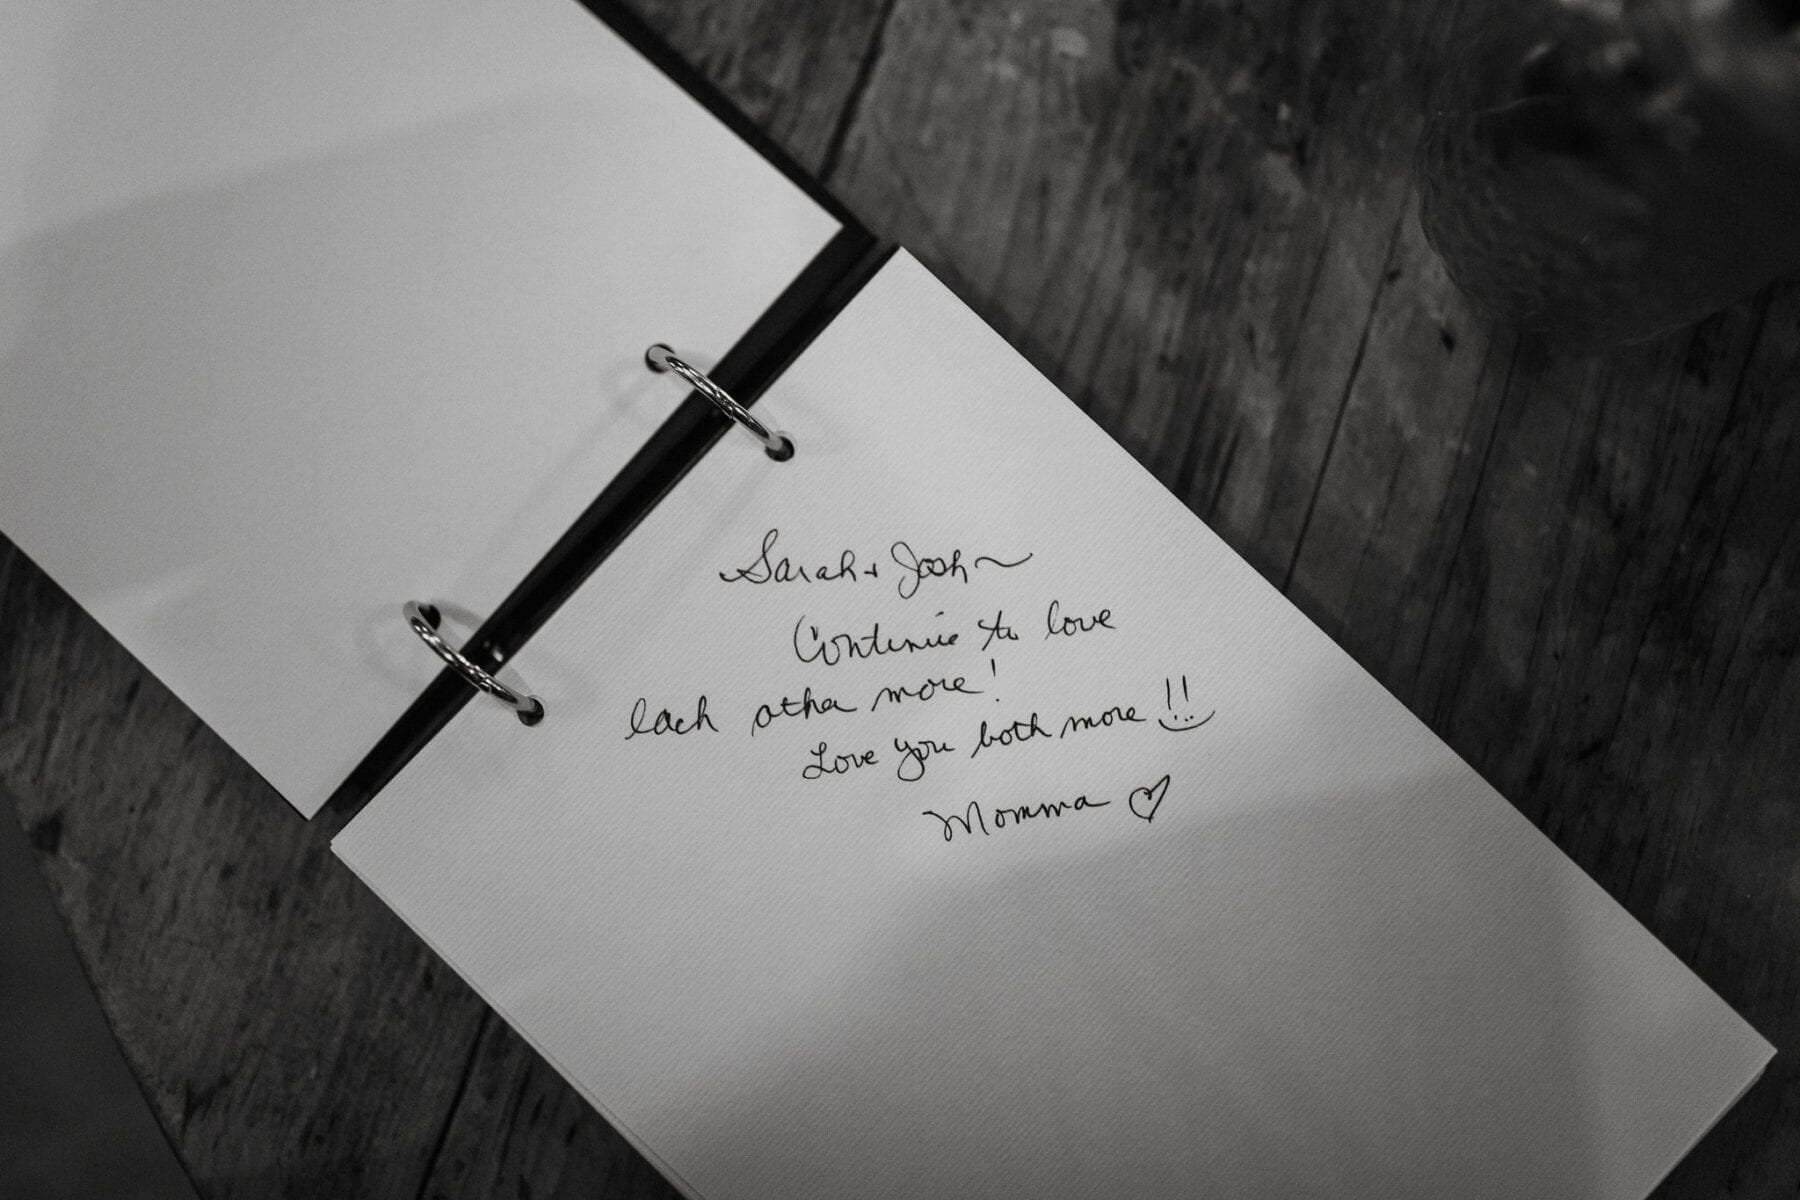 Sarah + Josh ~
Continue to love
each other more!
Love you both more!!
Momma ♡